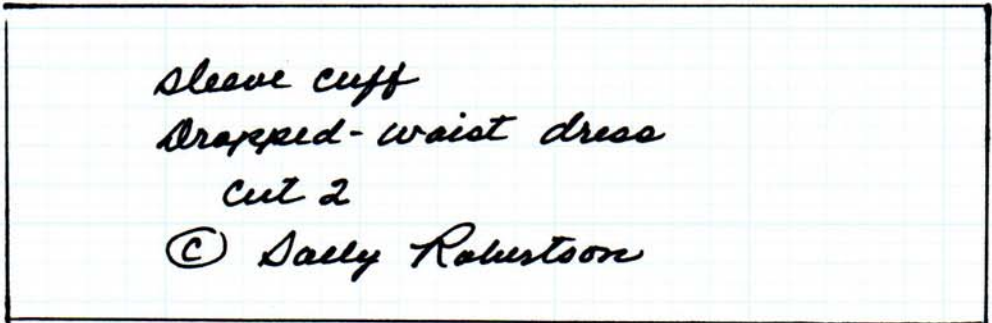 sleeve cuff
Dropped-waist dress
cut 2
© Sally Robertson